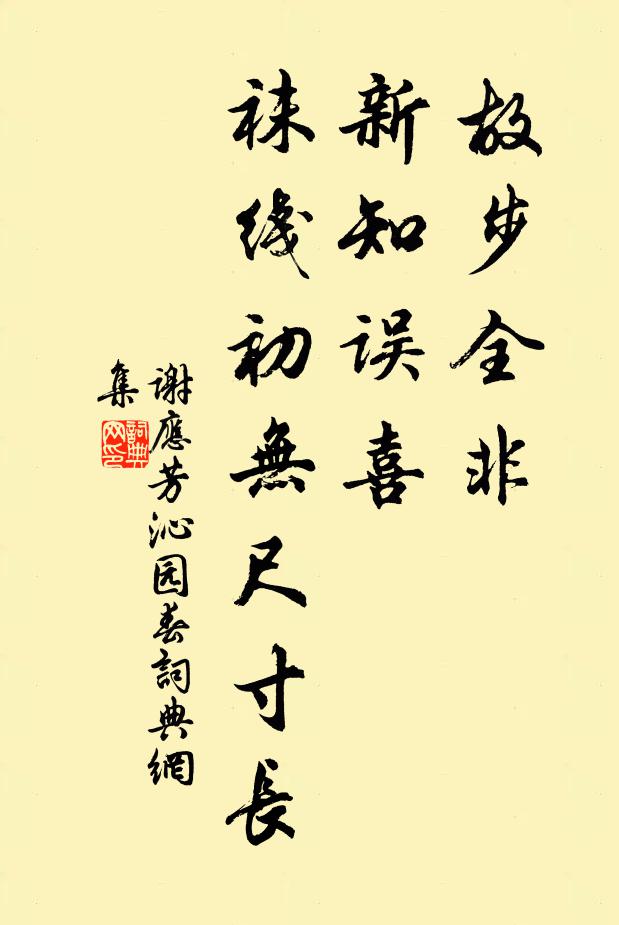 故步全非
新知误喜
袜线初無尺寸長
谢應芳沁园春詞典網
集
詞典
网印